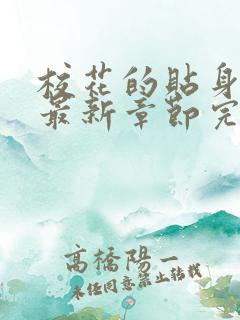 校花的貼身
最新章節完
高橋陽一
未經同意禁止轉載